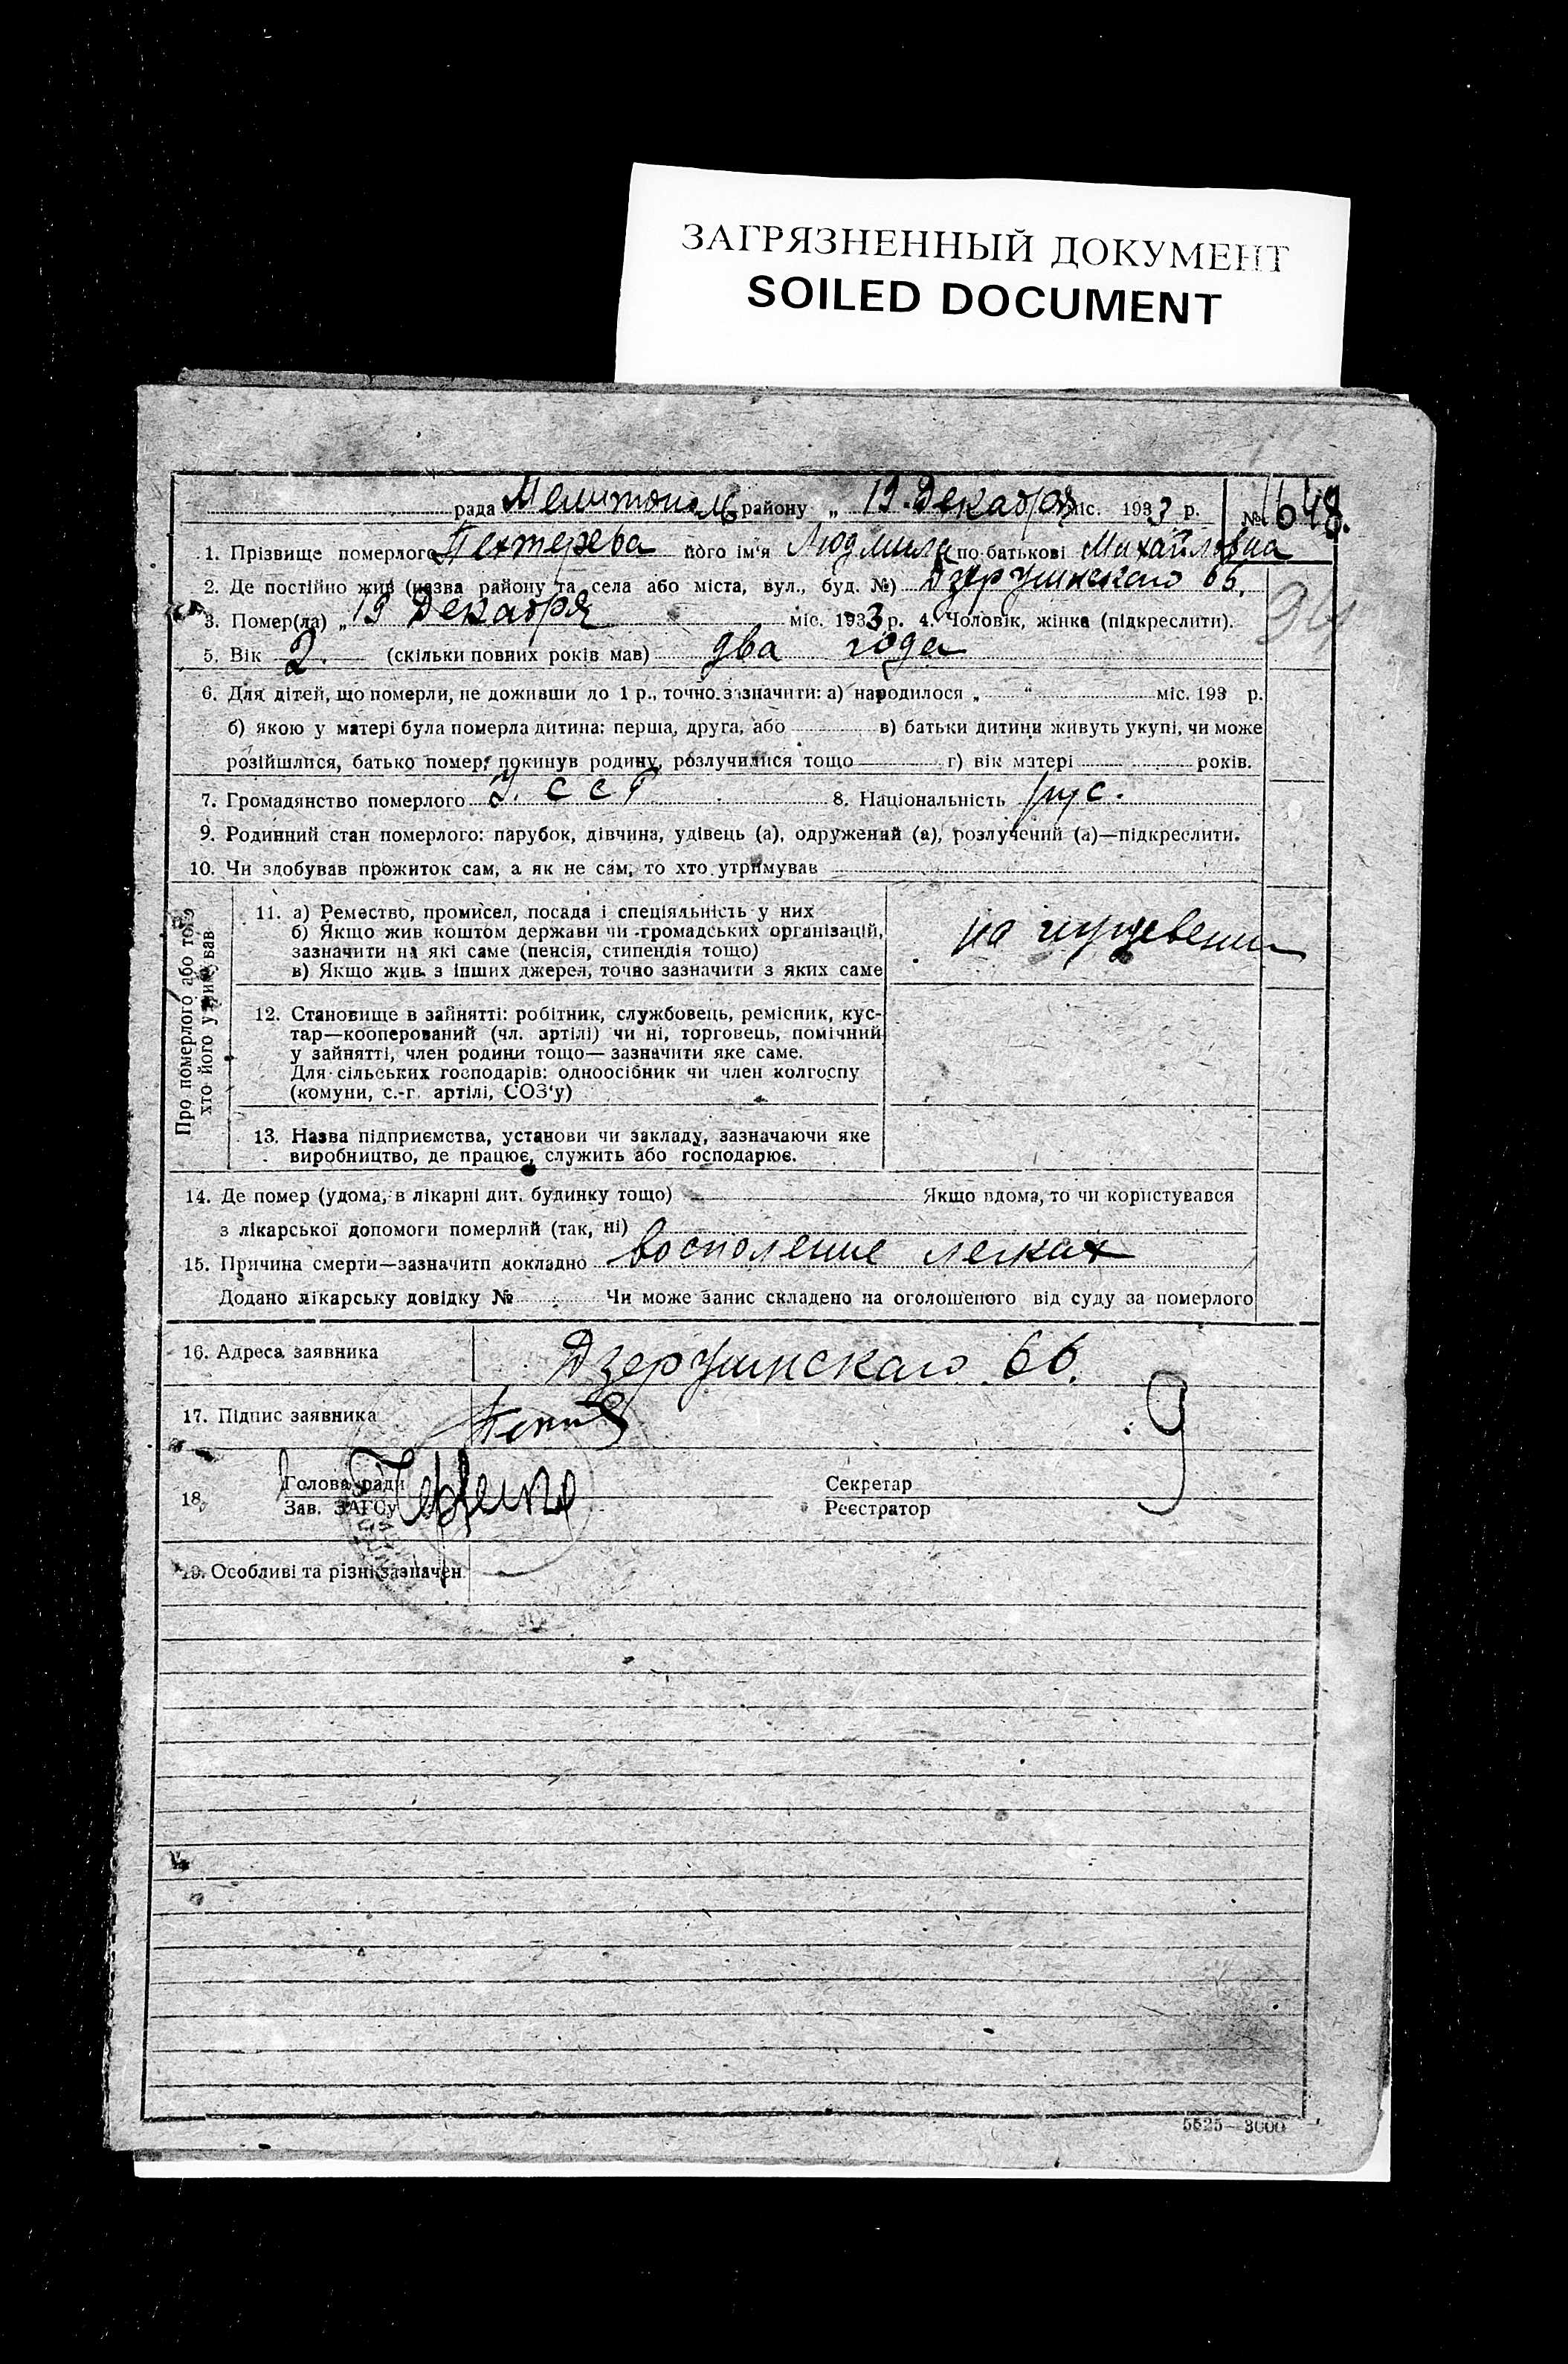 ЗАГРЯЗНЕННЫЙ ДОКУМЕНТ
SOILED DOCUMENT
рада Мелитополь району „ 19. Декабря міс. 1933 р. № 1648.
1. Прізвище померлого Пехтерева його ім'я Людмила по батькові Михайловна
2. Де постійно жив (назва району та села або міста, вул., буд. №) Дзержинскаго 66.
3. Помер(ла) „ 19 Декабря міс. 1933 р. 4. Чоловік, жінка (підкреслити).
5. Вік 2. (скільки повних років мав) два года
6. Для дітей, що померли, не доживши до 1 р., точно зазначити: а) народилося „ “ міс. 193 р.
б) якою у матері була померла дитина: перша, друга, або в) батьки дитини живуть укупі, чи може
розійшлися, батько помер, покинув родину, розлучилися тощо г) вік матері років.
7. Громадянство померлого У. С С Р 8. Національність рус.
9. Родивний стан померлого: парубок, дівчина, удівець (а), одружений (а), розлучений (а)—підкреслити.
10. Чи здобував прожиток сам, а як не сам, то хто утримував
Про померлого або того хто його утримував
11. а) Ремество, промисел, посада і спеціяльність у них
б) Якщо жив коштом держави чи громадських організацій,
зазначити на які саме (пенсія, стипендія тощо)
в) Якщо жив з інших джерел, точно зазначити з яких саме
на
12. Становище в зайнятті: робітник, службовець, ремісник, кус-
тар—кооперований (чл. артілі) чи ні, торговець, помічний
у зайнятті, член родини тощо—зазначити яке саме.
Для сільських господарів: одноосібник чи член колгоспу
(комуни, с.-г. артілі, СОЗ'у)
13. Назва підприємства, установи чи закладу, зазначаючи яке
виробництво, де працює, служить або господарює.
14. Де помер (удома, в лікарні дит. будинку тощо) Якщо вдома, то чи користувався
з лікарської допомоги померлий (так, ні)
15. Причина смерти—зазначити докладно восполение легких
Додано лікарську довідку № Чи може запис складено на оголошеного від суду за померлого
16. Адреса заявника Дзержинскаго 66.
17. Підпис заявника
18. Голова ради Секретар
Зав. ЗАГСу Реєстратор
19. Особливі та різні зазначен.
5525—3000